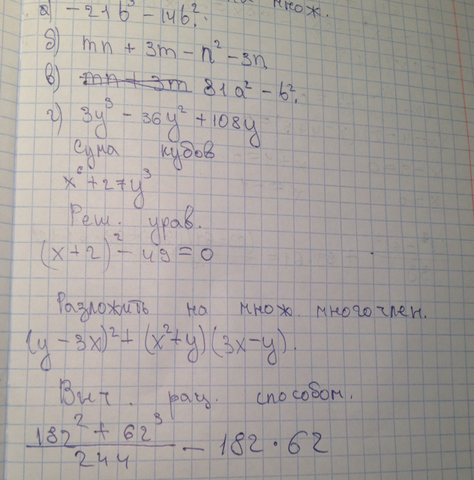 множ.
а) -21b³ - 14b².
б) mn + 3m - n² - 3n
в) mn + 3m 81a² - b².
г) 3y³ - 36y² + 108y
Сума кубов
x⁶ + 27y³
Реш. урав.
(x+2)² - 49 = 0
Разложить на множ. многочлен.
(y - 3x)² + (x² + y)(3x - y).
Выч. рац. способом.
182² + 62³
244
- 182 · 62